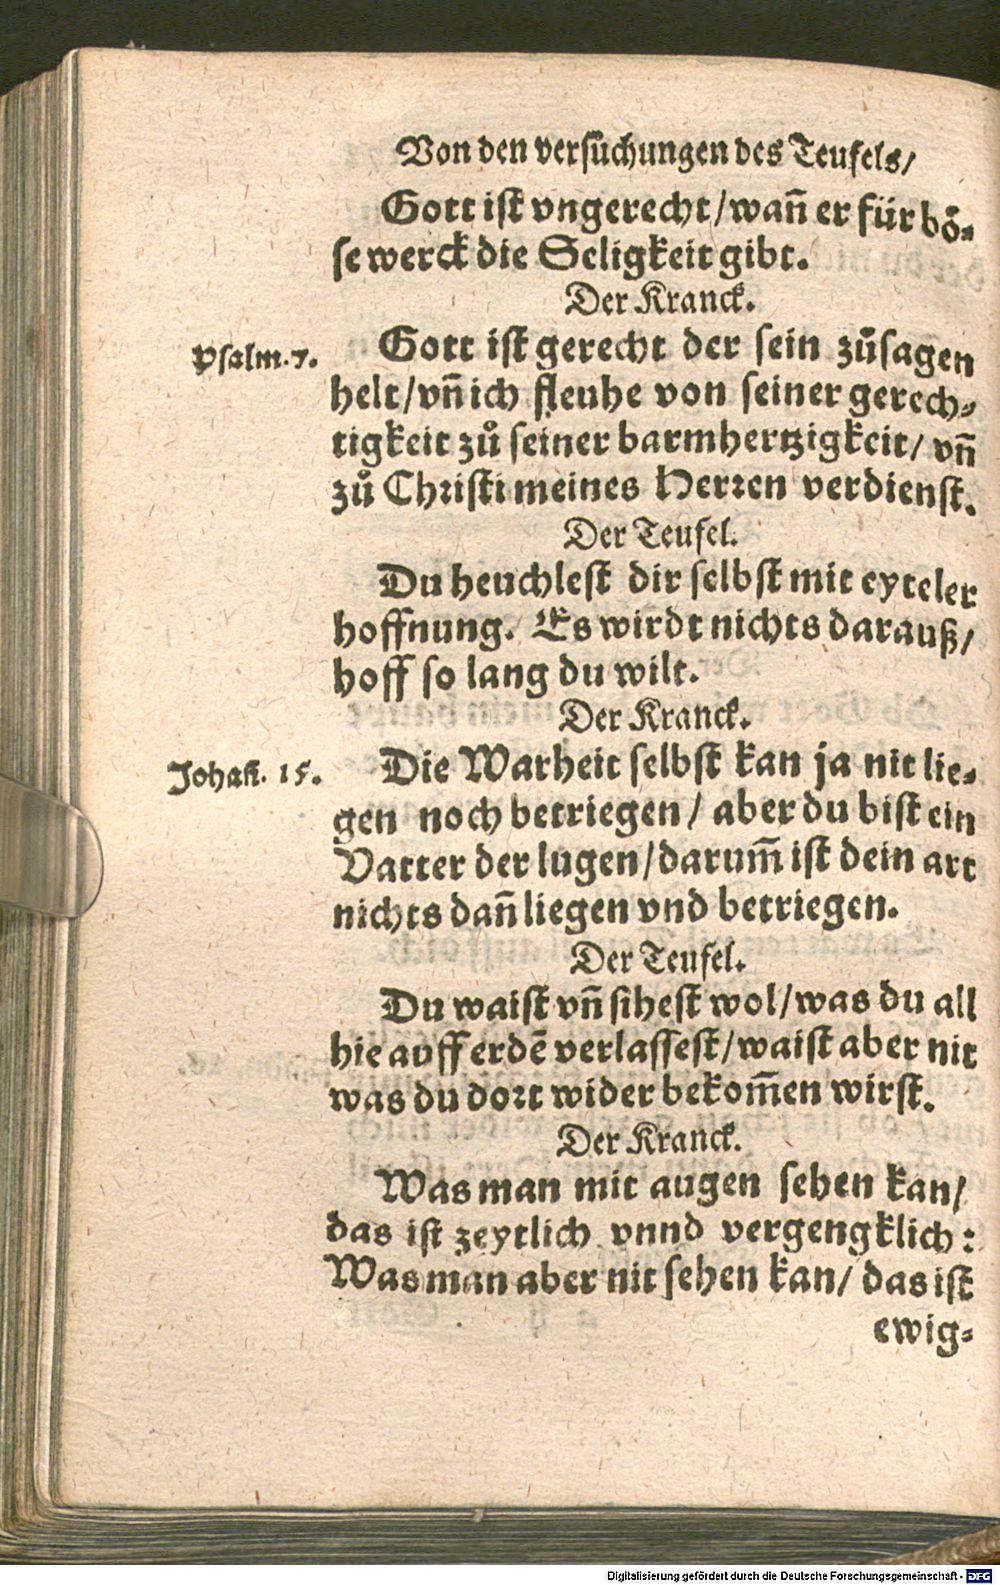 Von den versuͤchungen des Teufels/
Gott ist vngerecht/wañ er für boͤ-
se werck die Seligkeit gibt.
Der Kranck.
Psalm.7.
Gott ist gerecht der sein zuͦsagen
helt/vñ ich fleuhe von seiner gerech-
tigkeit zuͦ seiner barmhertzigkeit/ vñ
zuͦ Christi meines Herren verdienst.
Der Teufel.
Du heuchlest dir selbst mit eyteler
hoffnung. Es wirdt nichts darauß/
hoff so lang du wilt.
Der Kranck.
Johañ. 15.
Die Warheit selbst kan ja nit lie-
gen noch betriegen/ aber du bist ein
Vatter der lugen/darum̃ ist dein art
nichts dañ liegen vnd betriegen.
Der Teufel.
Du waist vñ sihest wol/was du all
hie auff erdẽ verlassest/waist aber nit
was du dort wider bekom̃en wirst.
Der Kranck.
Was man mit augen sehen kan/
das ist zeytlich vnnd vergengklich:
Was man aber nit sehen kan/ das ist
ewig-
Digitalisierung gefördert durch die Deutsche Forschungsgemeinschaft - DFG